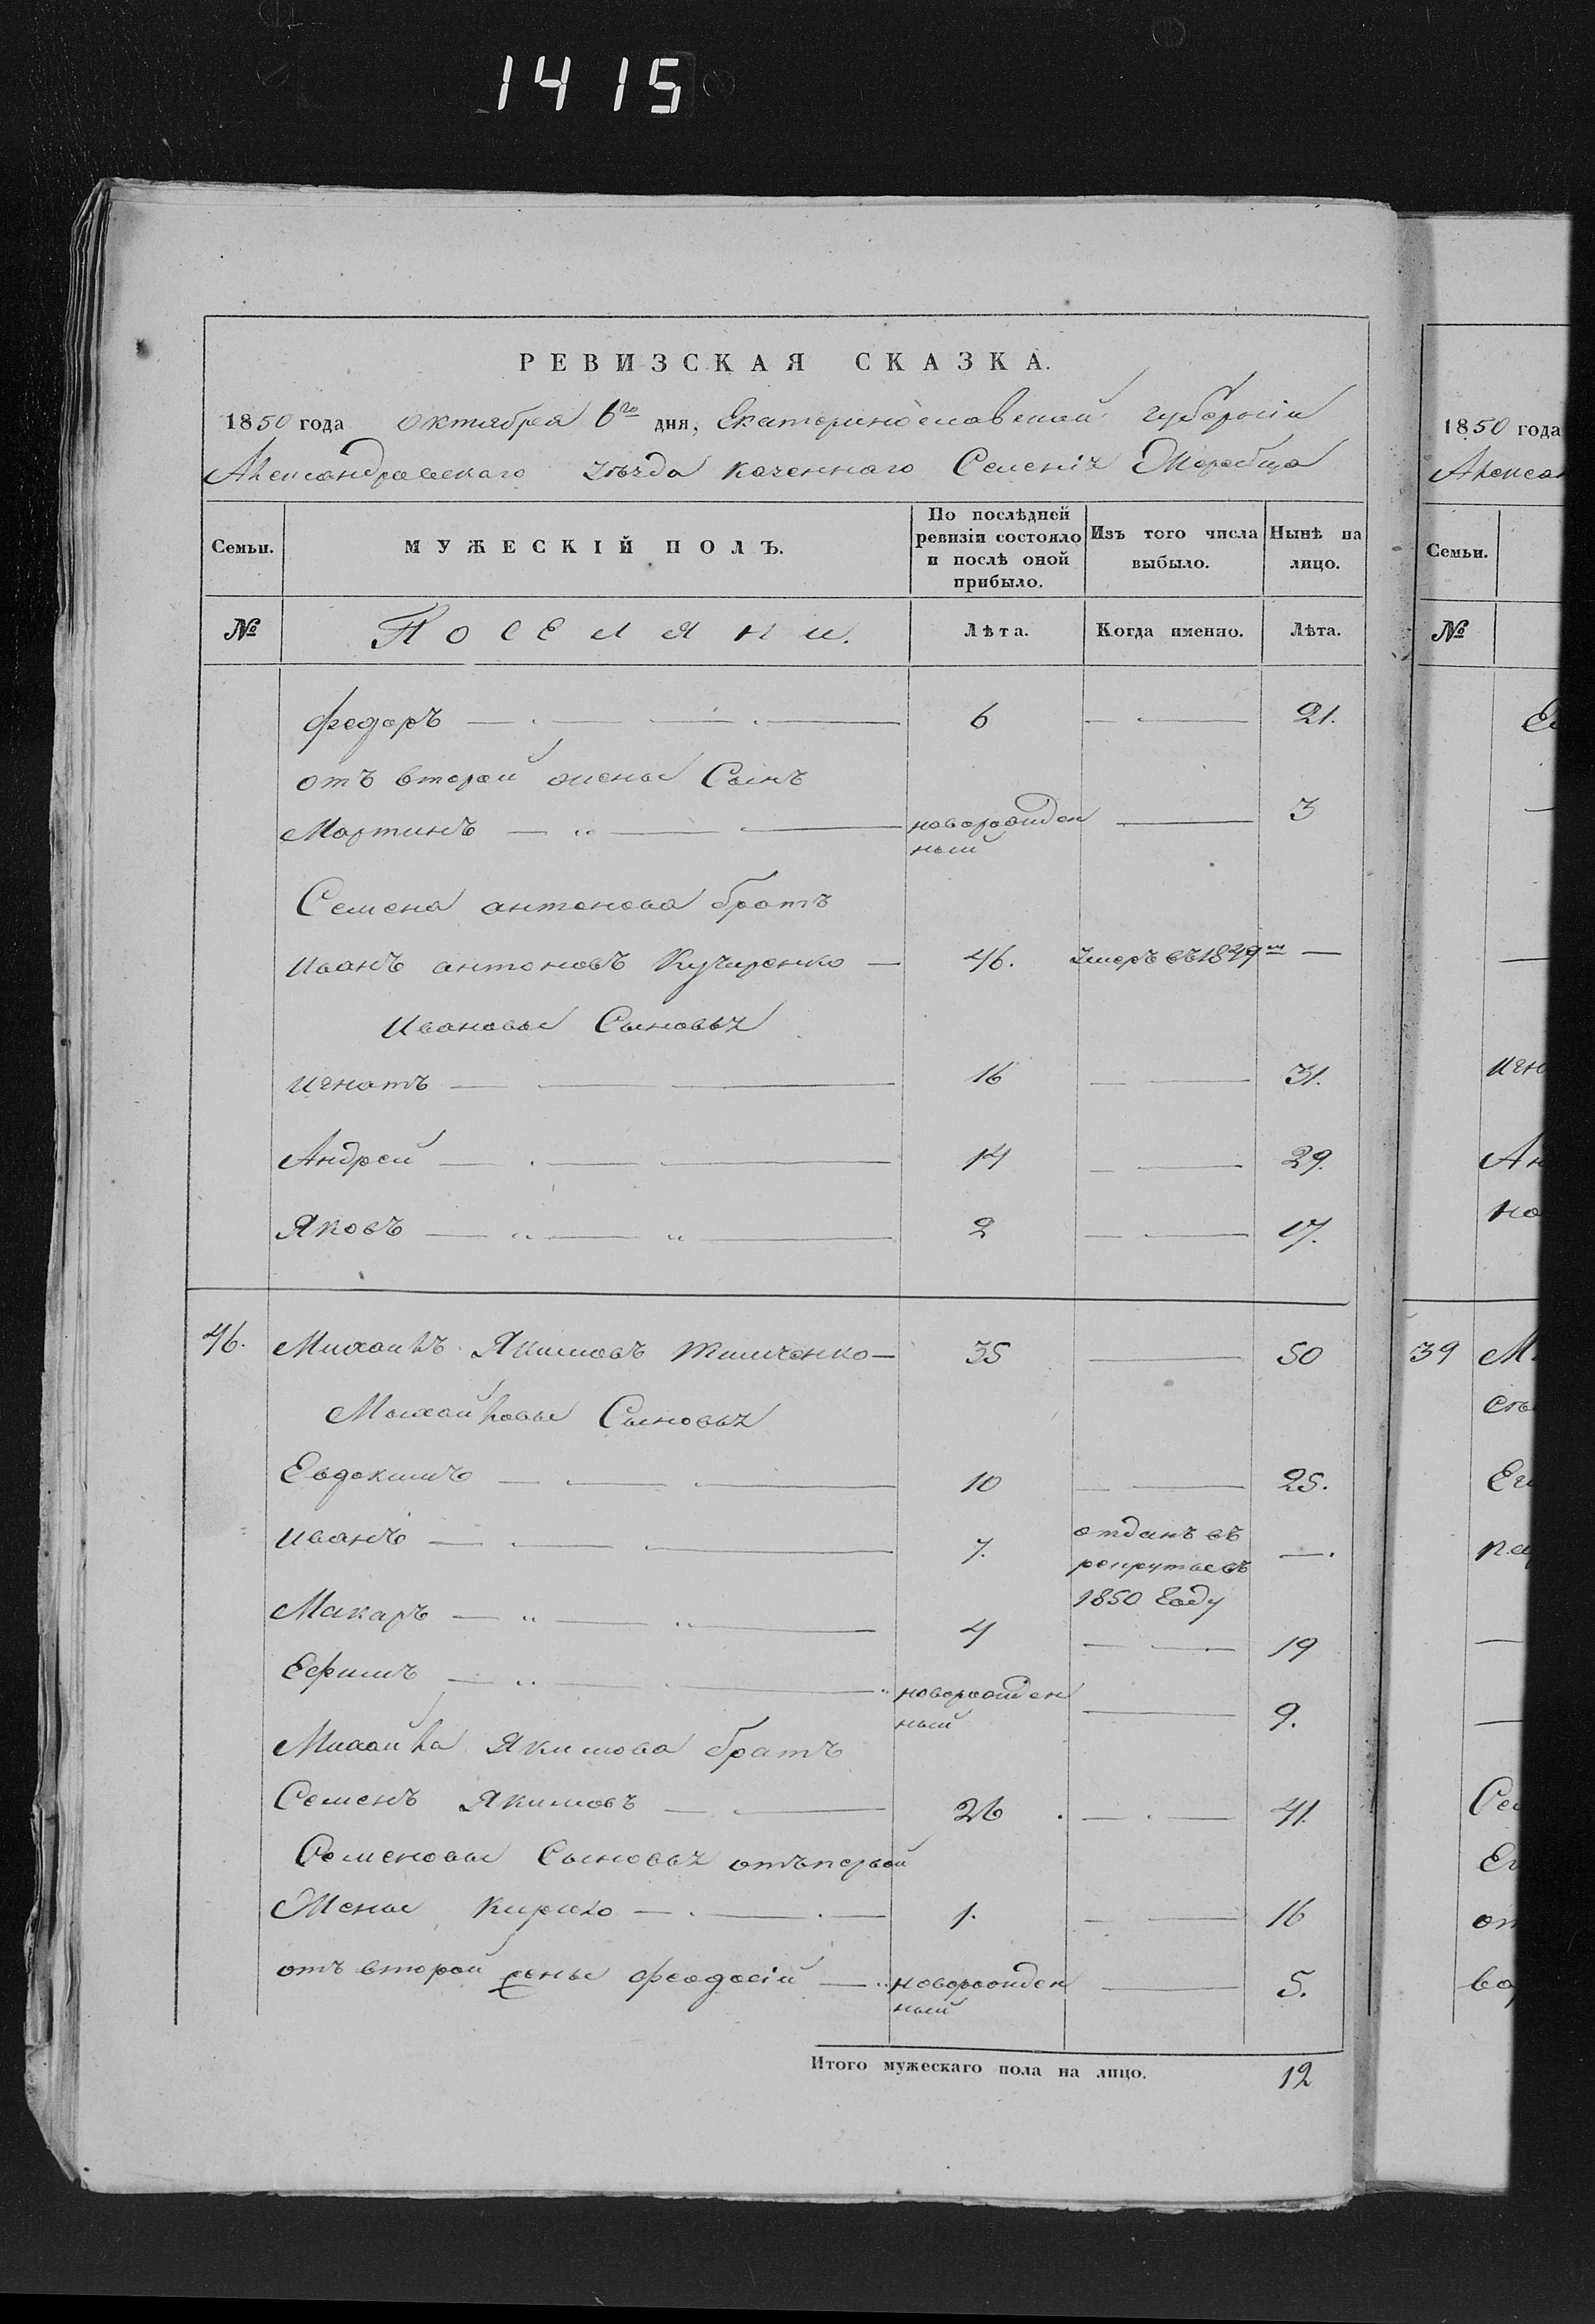 1415
РЕВИЗСКАЯ СКАЗКА.
1850 года октября 6го дня, Екатеринославской губернiи
Александровскаго уѣзда казеннаго Селенiя Жеребца
Семьи. МУЖЕСКIЙ ПОЛЪ. По послѣдней ревизiи состояло и послѣ оной прибыло. Изъ того числа выбыло. Нынѣ на лицо.
№ Поселяни. Лѣта. Когда именно. Лѣта.
Федоръ 6 21.
отъ второй жены Сынъ
Мартинъ новорожденный 3
Семена антонова братъ
Иванъ антоновъ Кучиренко 46. Умеръ въ 1849м —
Ивановы Сыновья
Игнатъ 16 31.
Андрей 14 29.
Яковъ 2 17.
46. Михаилъ Якимовъ Тимченко 35 50
Михайловы Сыновья
Евдокимъ 10 25.
Иванъ 7. отданъ въ рекруты въ 1850 Году —.
Макаръ 4 19
Ефимъ новорожденный 9.
Михайла Якимова братъ
Семенъ Якимовъ 26 41.
Семеновы Сыновья отъ первой
Жены 1. 16
отъ второй жены Феодосiй новорожденный 5.
Итого мужескаго пола на лицо. 12
1850 года
Семьи.
№
39